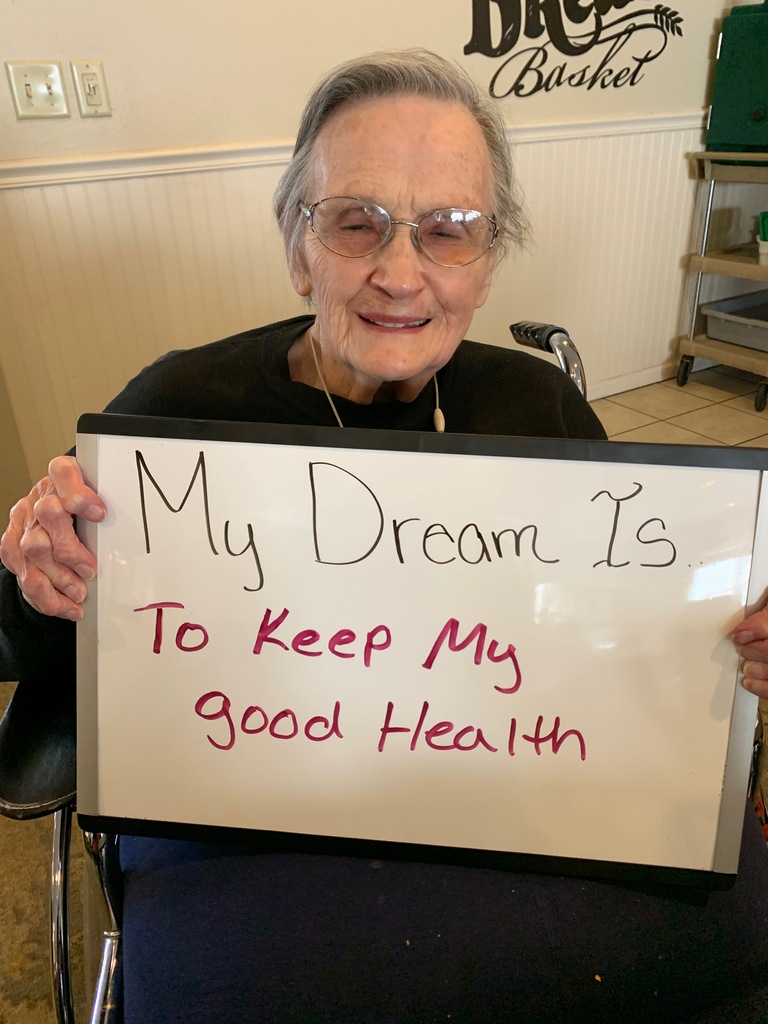 Basket
My Dream Is..
To Keep My
good Health